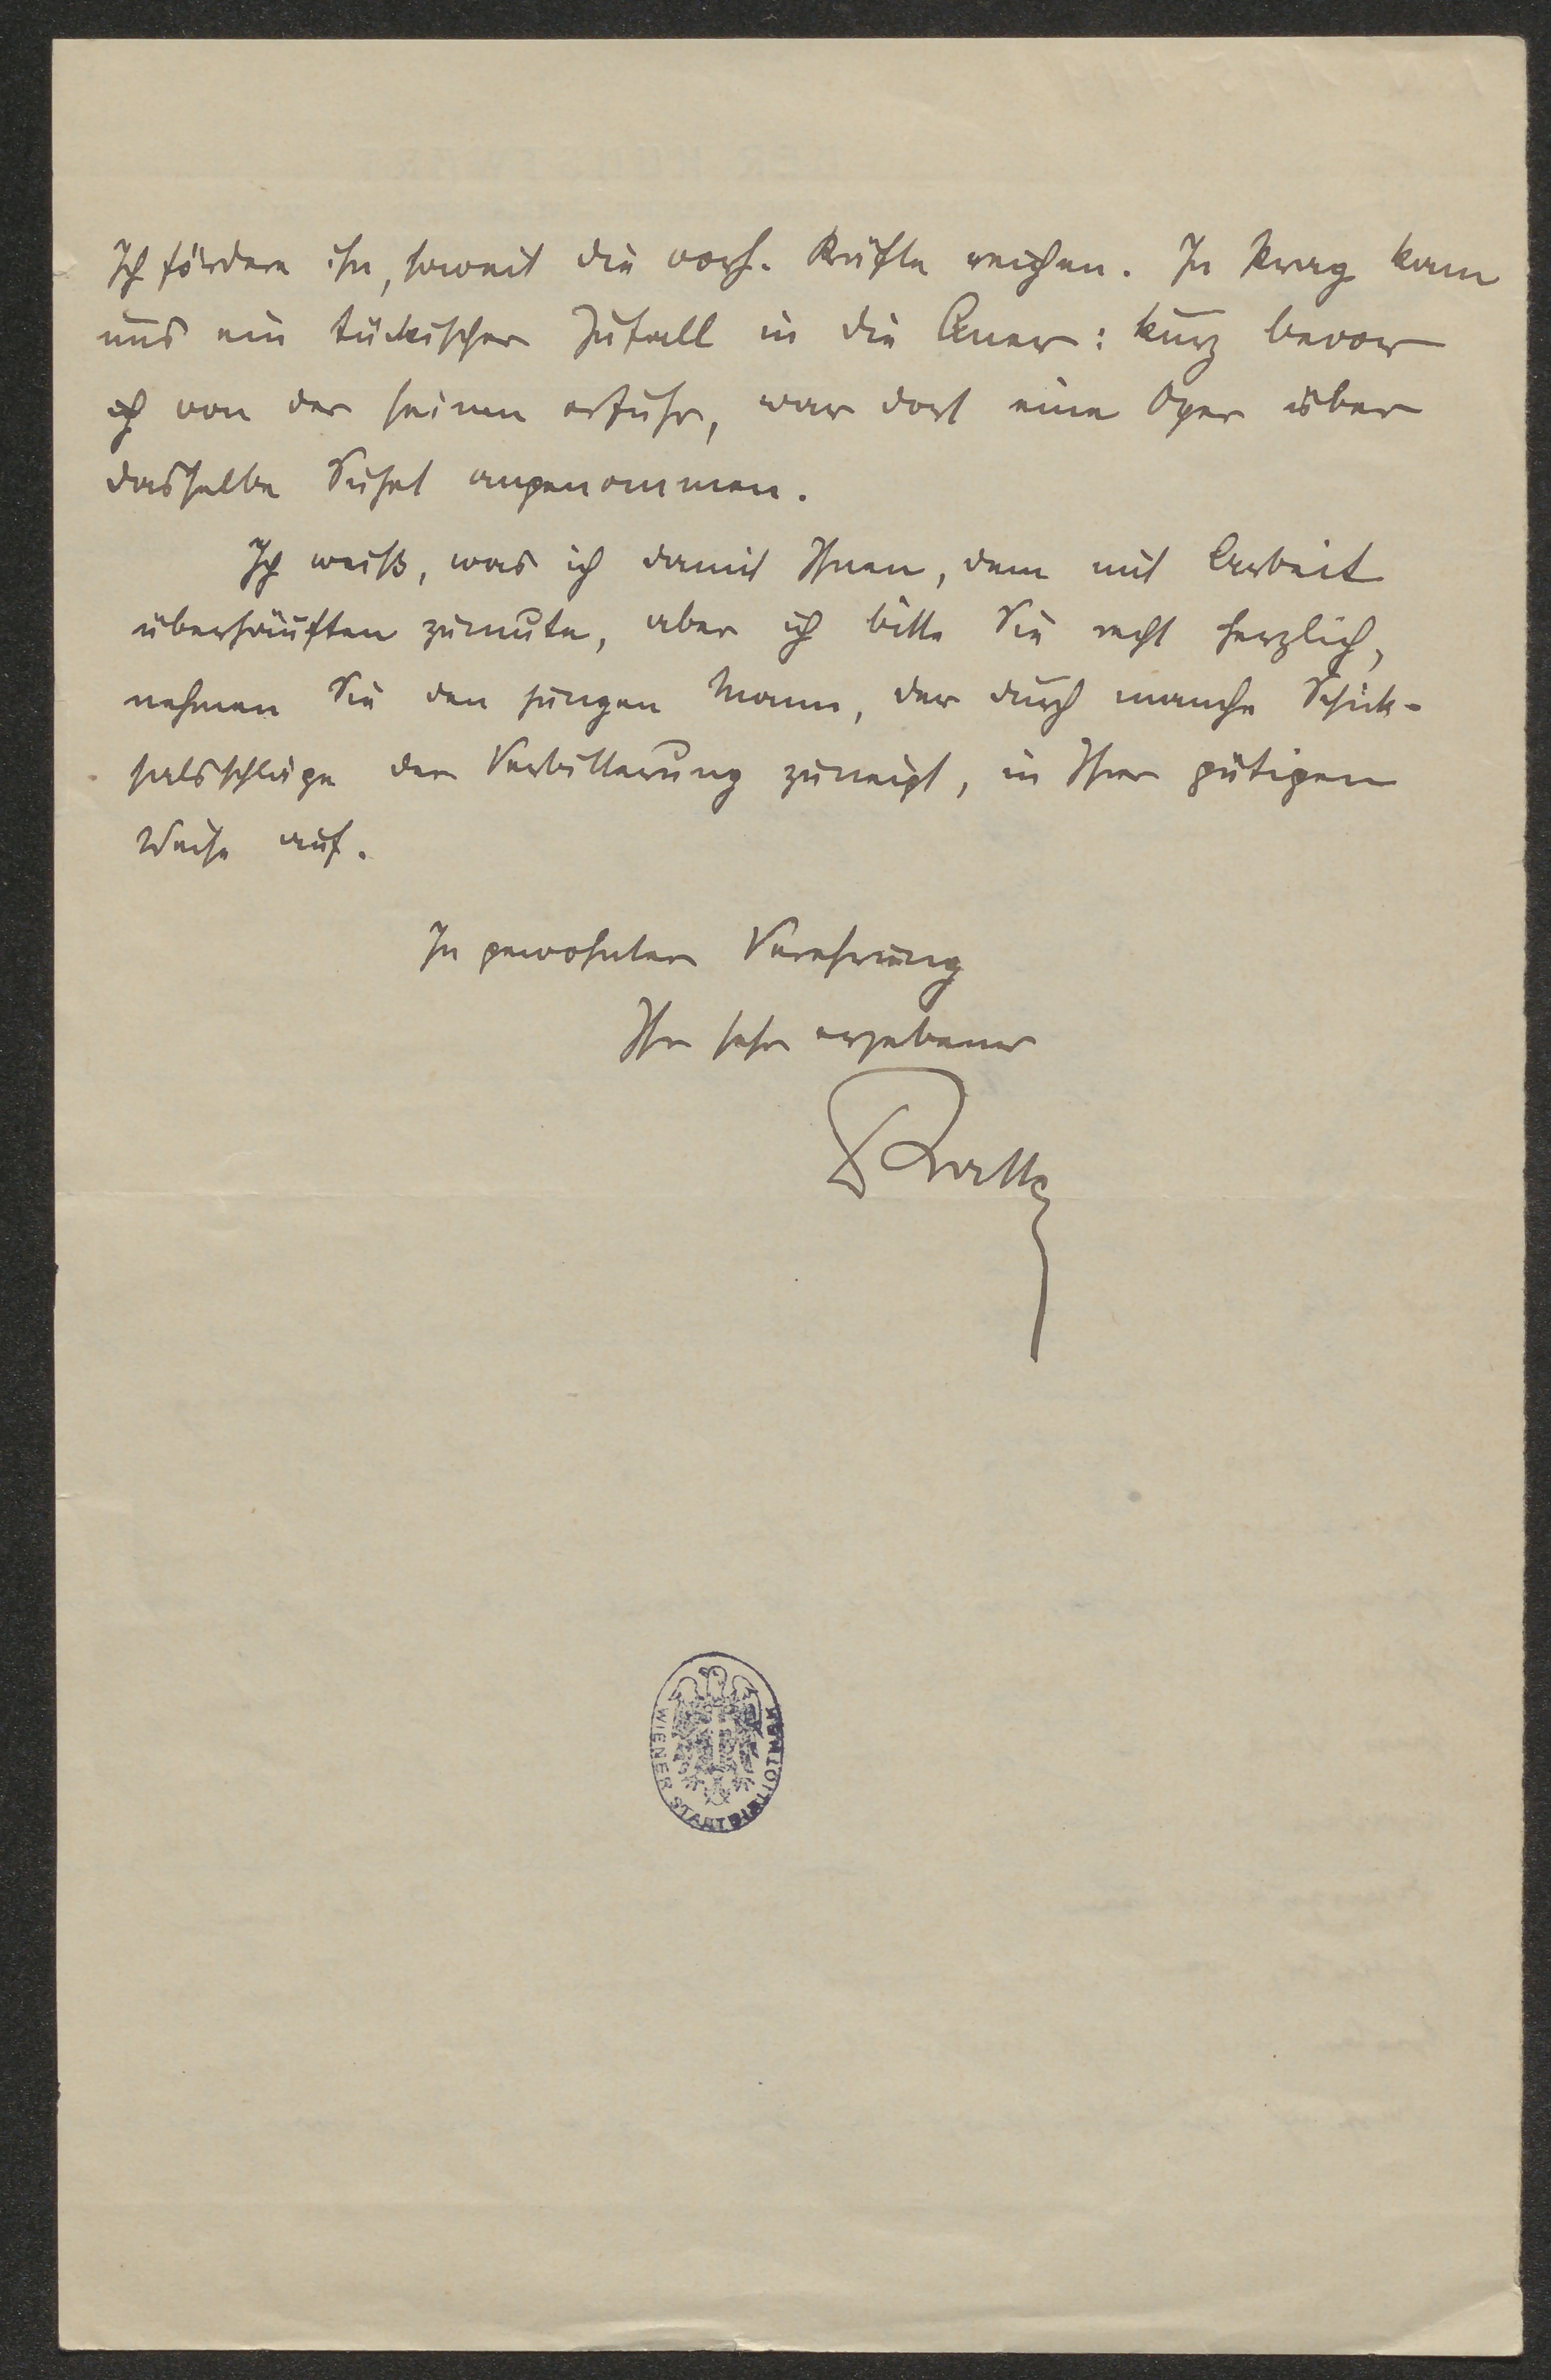 Ich fördere ihn, soweit die vorh. Kräfte reichen. In Prag kam
uns ein tückischer Zufall in die Quer: kurz bevor
ich von der seinen erfuhr, war dort eine Oper über
dasselbe Sujet angenommen.
Ich weiß, was ich damit Ihnen, dem mit Arbeit
überhäuften zumute, aber ich bitte Sie recht herzlich,
nehmen Sie den jungen Mann, der durch manche Schick-
salsschläge der Verbitterung zuneigt, in Ihrer gütigen
Weise auf.
In gewohnter Verehrung
Ihr sehr ergebener
WIENER STADTBIBLIOTHEK